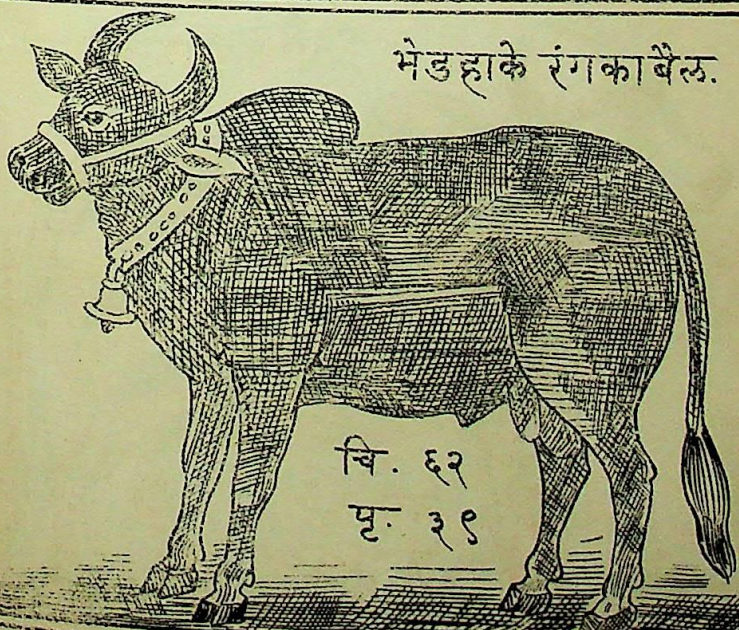 भेडहाके रंगका बैल.
चि. ६२
पृ. ३९